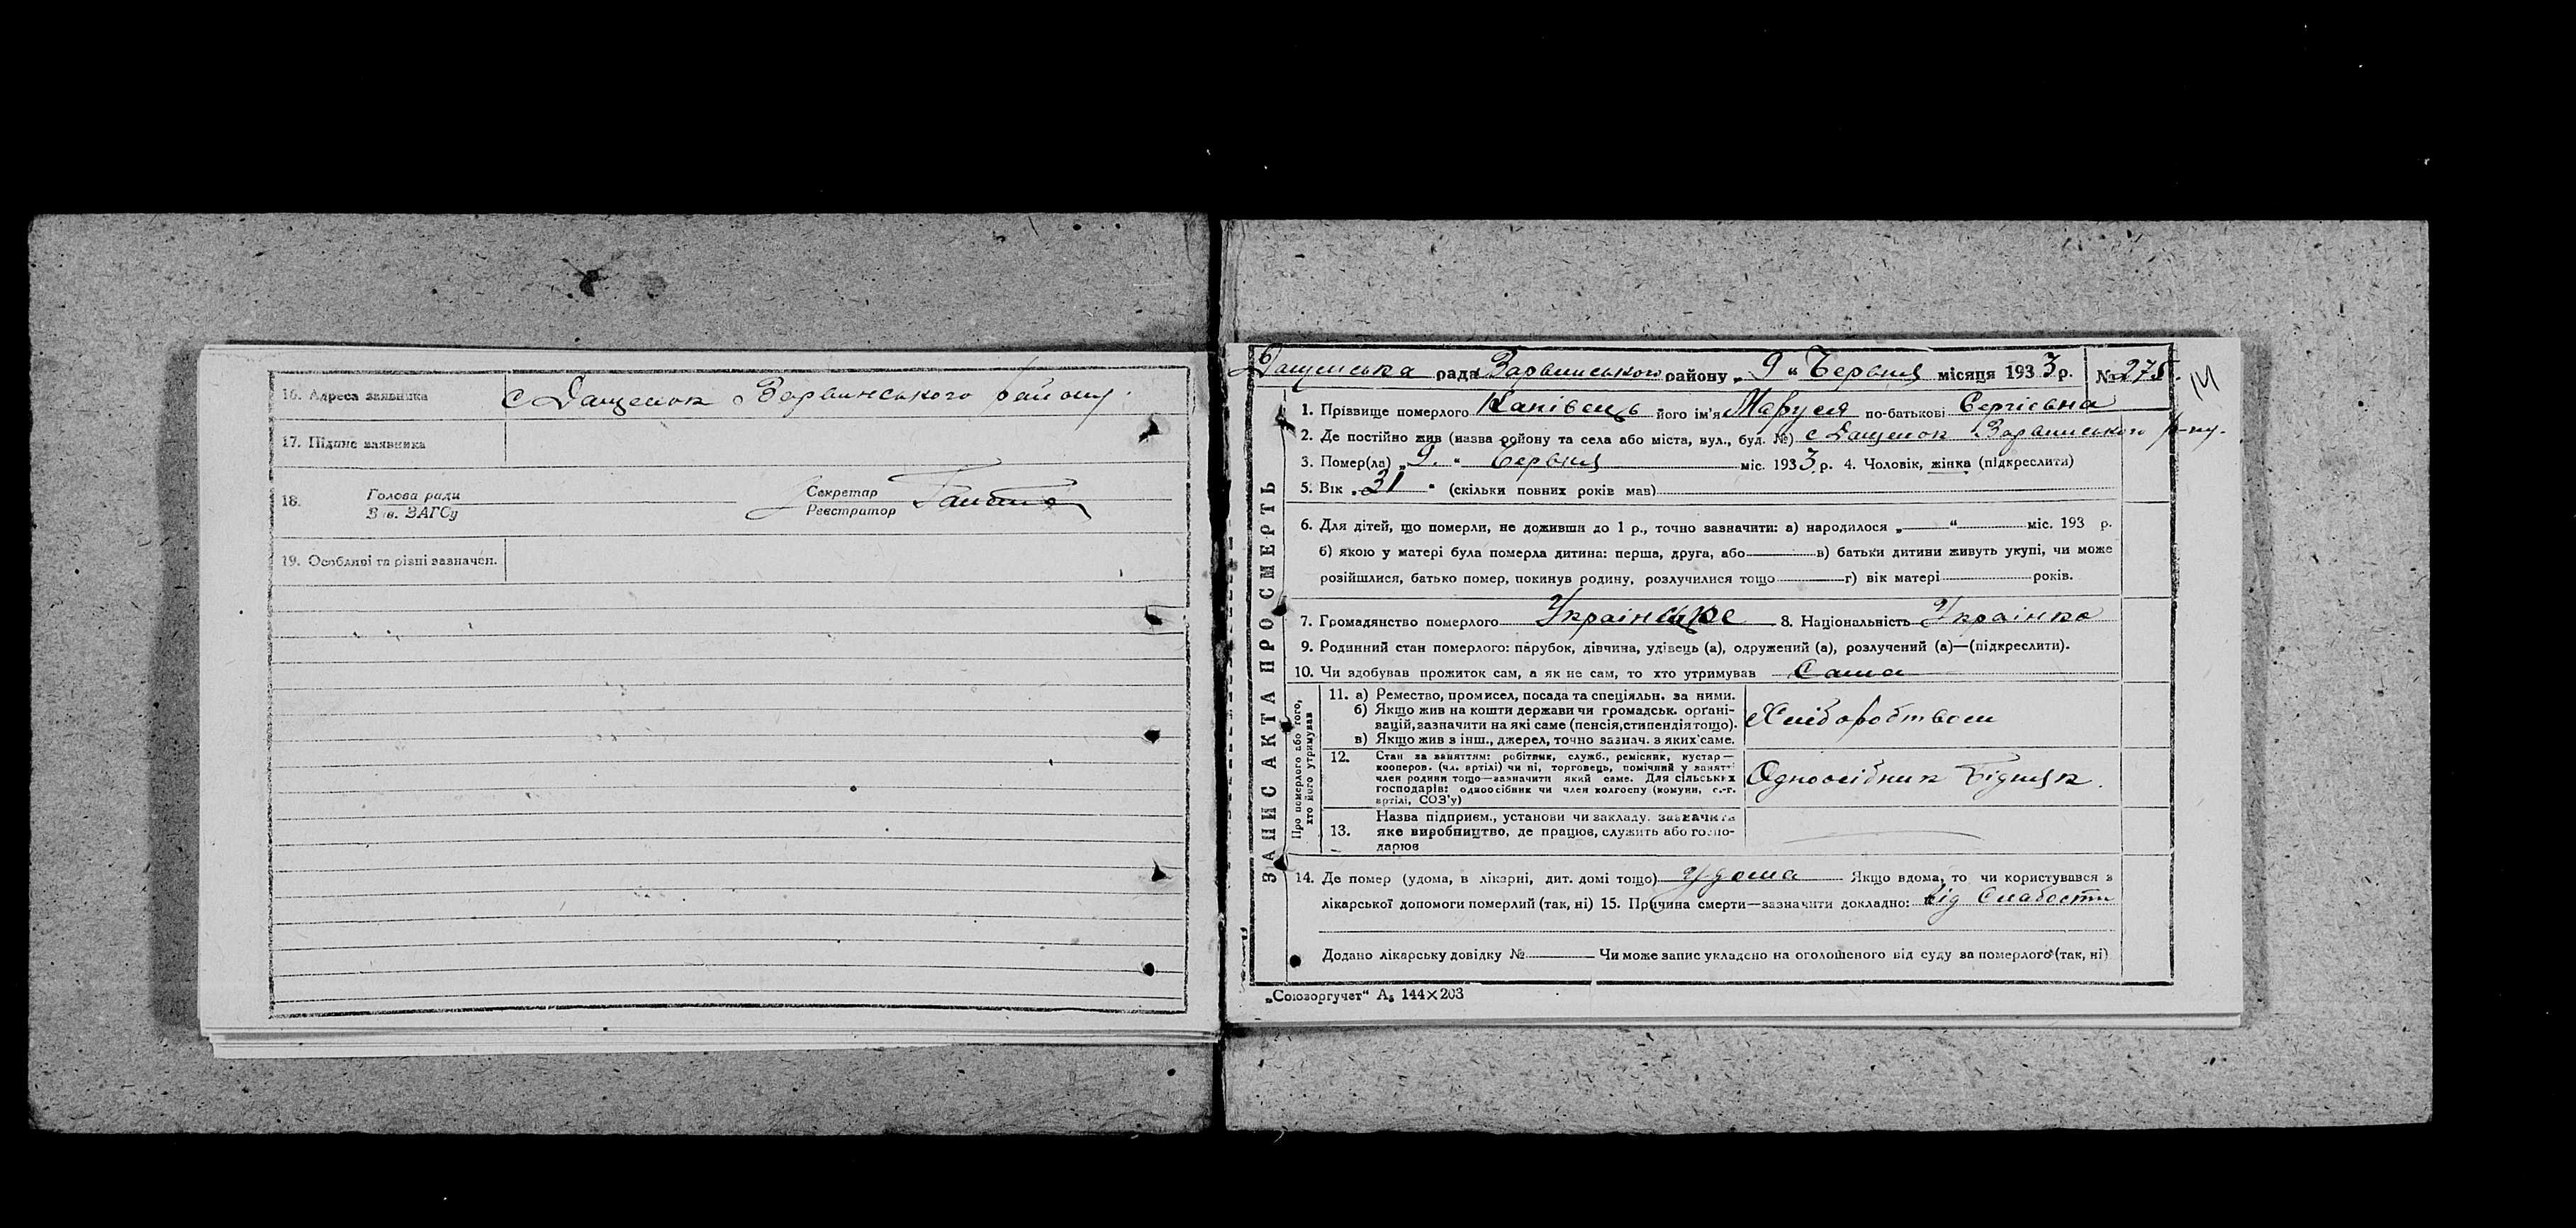 16. Адреса заявника с Дащенок Варвинського району.
17. Підпис заявника
18. Голова ради
Зав. ЗАГСу
Секретар
Реєстратор
19. Особливі та різні зазначен.
Дащенська рада Варвинського району „ 9 “ Червня місяця 1933 р. № 275
14
ЗАПИС АКТА ПРО СМЕРТЬ
1. Прізвище померлого Канівець його ім'я Маруся по-батькові Сергієвна
2. Де постійно жив (назва району та села або міста, вул., буд. №) с Дащенок Варвинського р-ну.
3. Помер(ла) „ 9. “ Червня міс. 1933 р. 4. Чоловік, жінка (підкреслити)
5. Вік „ 31 “ (скільки повних років мав)
6. Для дітей, що померли, не доживши до 1 р., точно зазначити: а) народилося „ “ міс. 193 р.
б) якою у матері була померла дитина: перша, друга, або в) батьки дитини живуть укупі, чи може
розійшлися, батько помер, покинув родину, розлучилися тощо г) вік матері років.
7. Громадянство померлого Українське 8. Національність Українка
9. Родинний стан померлого: парубок, дівчина, удівець (а), одружений (а), розлучений (а)—(підкреслити).
10. Чи здобував прожиток сам, а як не сам, то хто утримував Сама
Про померлого або того,
хто його утримував
11. а) Ремество, промисел, посада та спеціяльн. за ними.
б) Якщо жив на кошти держави чи громадськ. органі-
зацій, зазначити на які саме (пенсія, стипендія тощо).
в) Якщо жив з інш., джерел, точно зазнач. з яких саме.
Хліборобтвом
12. Стан за заняттям: робітник, служб., ремісник, кустар—
кооперов. (чл. артілі) чи ні, торговець, помічний у занятті
член родини тощо—зазначити який саме. Для сільських
господарів: одноосібник чи член колгоспу (комуни, с.-г.
артілі, СОЗ'у)
Одноосібник бідняк.
13. Назва підприєм., установи чи закладу, зазначити
яке виробництво, де працює, служить або госпо-
дарює
14. Де помер (удома, в лікарні, дит. домі тощо) удома Якщо вдома, то чи користувався з
лікарської допомоги померлий (так, ні) 15. Причина смерти—зазначити докладно: від слабости
Додано лікарську довідку № Чи може запис укладено на оголошеного від суду за померлого (так, ні)
„Союзоргучет“ А₅ 144×203